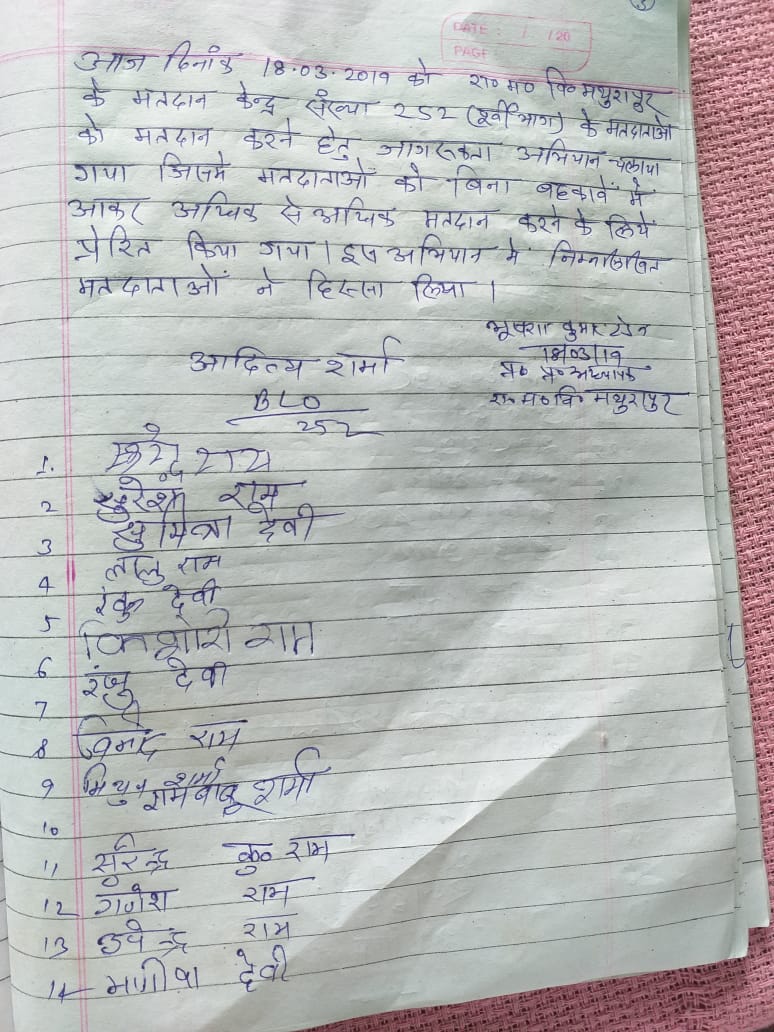 DATE: / /20
PAGE
आज दिनांक 18.03.2019 को रा० म० वि० मथुरापुर
के मतदान केन्द्र संख्या 252 (पूर्वी भाग) के मतदाताओं
को मतदान करने हेतु जागरूकता अभियान चलाया
गया जिसमे मतदाताओं को बिना बहकावें में
आकर अधिक से अधिक मतदान करने के लिये
प्रेरित किया गया। इस अभियान में निम्नलिखित
मतदाताओं ने हिस्सा लिया।
कुमार
18/03/19
प्र० प्र० अध्यापक
रा० म० वि० मथुरापुर
आदित्य शर्मा
BLO
252
1. राय
2 सुरेश राम
3 सुमित्रा देवी
4 लालु राम
5 देवी
6 किशोरी राम
7 रंजु देवी
8 राम
9 मिथुन शर्मा
10 रामबाबू शर्मा
11 सुरेन्द्र कु० राम
12 गणेश राम
13 राम
14 देवी